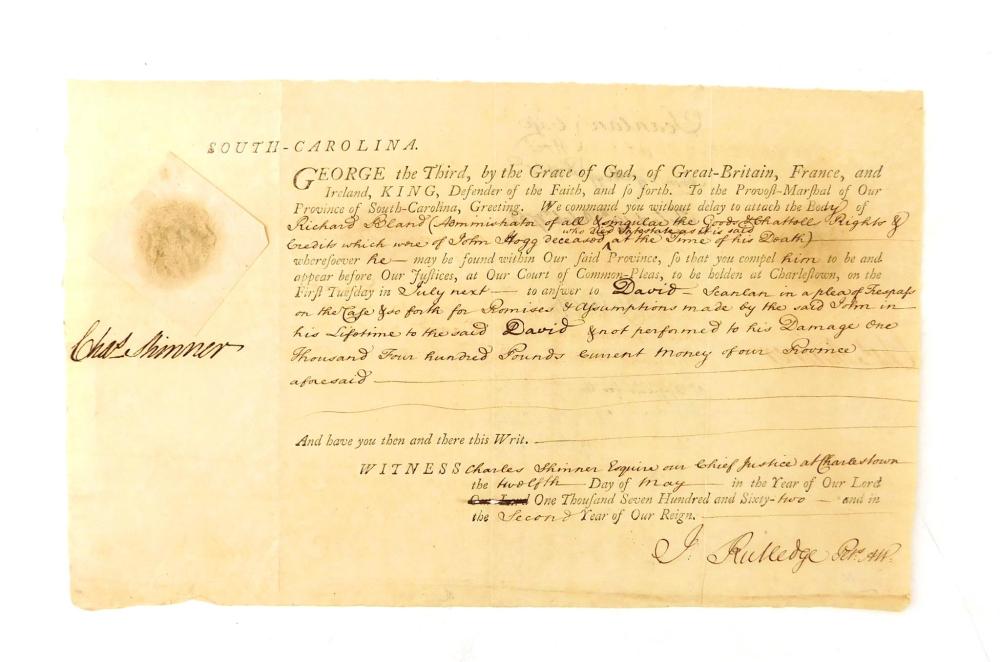 SOUTH-CAROLINA.
GEORGE the Third, by the Grace of God, of Great-Britain, France, and
Ireland, KING, Defender of the Faith, and ſo forth. To the Provoſt-Marſhal of Our
Province of South-Carolina, Greeting. We command you without delay to attach the Body of
Richard Bland (Administrator of all & singular the Goods & Chattells Rights &
who died Intestate as it is said
Credits which were of John Hogg deceased ^ at the Time of his Death)
whereſoever he — may be found within Our ſaid Province, ſo that you compel him to be and
appear before Our Juſtices, at Our Court of Common-Pleas, to be holden at Charleſtown, on the
Firſt Tueſday in July next — to anſwer to David Scanlan in a plea of Trespass
on the Case & so forth for Promises & Assumptions made by the said John in
his Lifetime to the said David & not performed to his Damage One
Thousand Four hundred Pounds Current Money of our Province
aforesaid
And have you then and there this Writ.
WITNESS Charles Skinner Esquire our Chief Justice at Charlestown
the twelfth Day of May — in the Year of Our Lord
Our Lord One Thouſand Seven Hundred and Sixty-two — and in
the Second Year of Our Reign.
Chas. Skinner
J: Rutledge